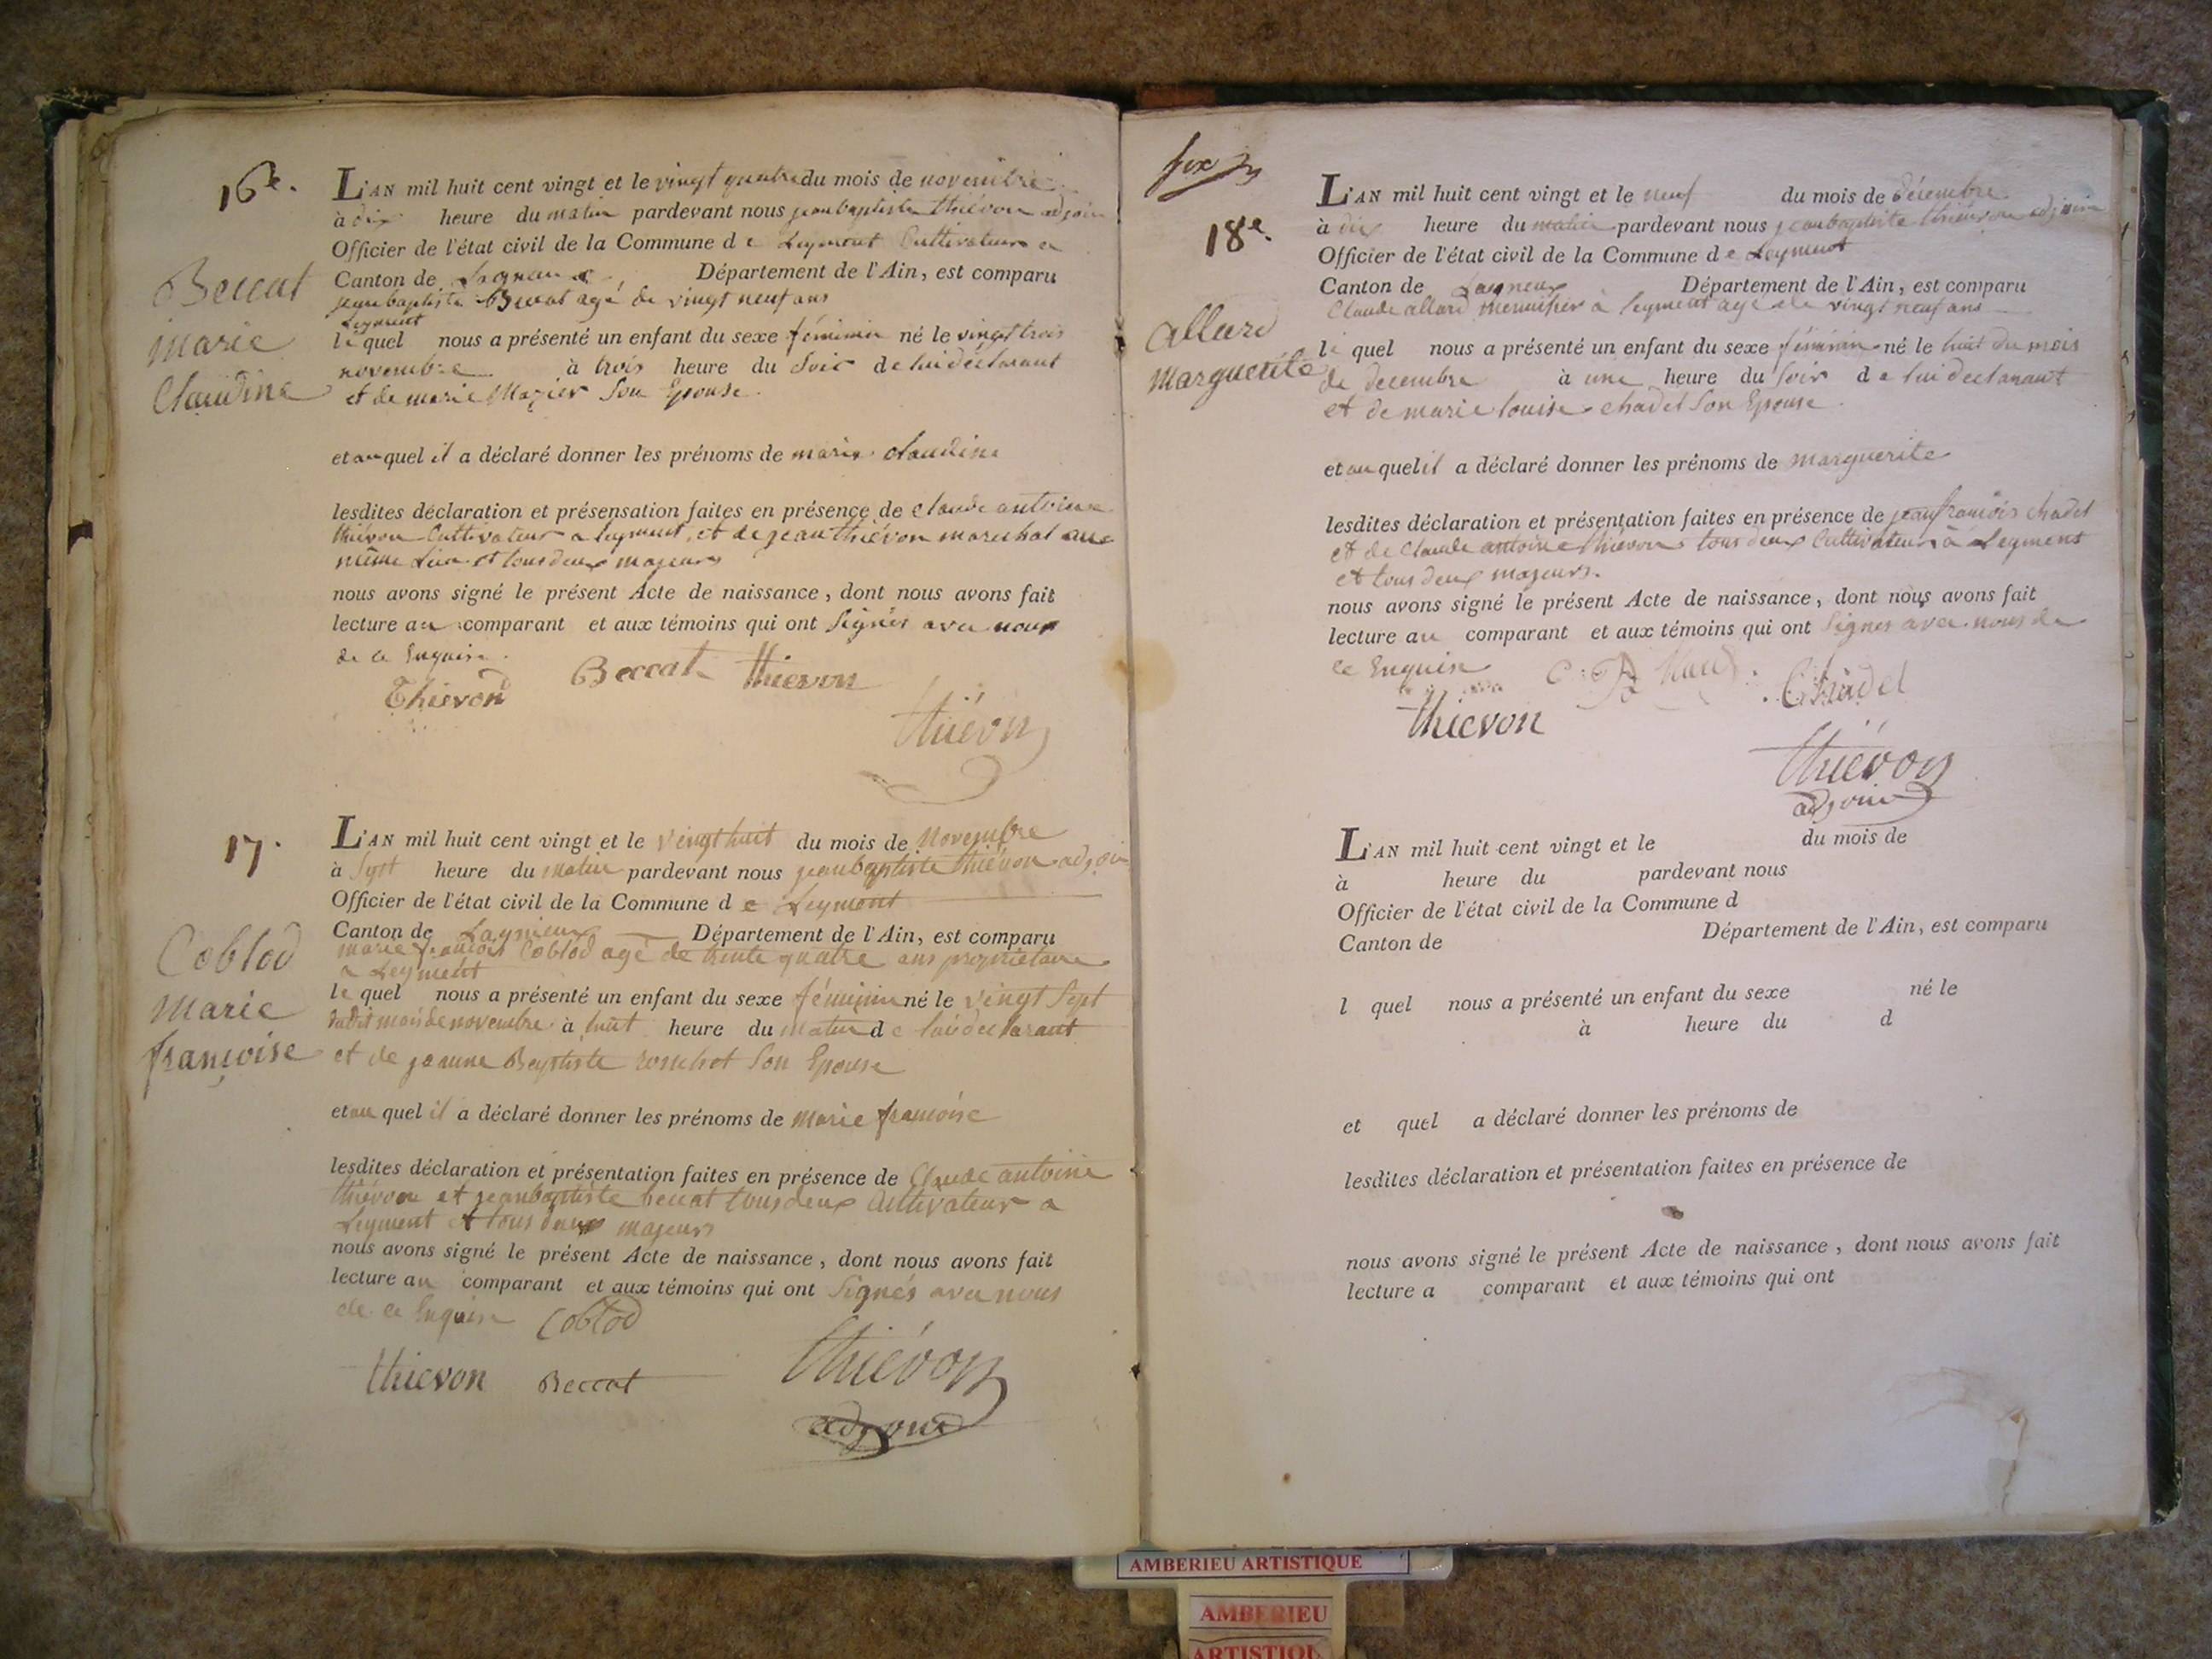 16e.
Beccat
marie
Claudine
L'AN mil huit cent vingt et le vingt quatre du mois de novembre
à dix heure du matin pardevant nous jean baptiste thiévon adjoin
Officier de l'état civil de la Commune de Leyment Cultivateur a
Canton de Lagnieux Département de l'Ain, est comparu
jean baptiste Beccat agé de vingt neuf ans
Leyment
le quel nous a présenté un enfant du sexe féminin né le vingt trois
novembre à trois heure du Soir de lui déclarant
et de marie Mazier Son Epouse.
et au quel il a déclaré donner les prénoms de marie claudine
lesdites déclaration et présensation faites en présence de claude antoine
thiévon Cultivateur a leyment, et de jean thiévon marechal au
même Lieu et tous deux majeurs
nous avons signé le présent Acte de naissance, dont nous avons fait
lecture au comparant et aux témoins qui ont Signés avec nous
de ce Enquise.
Thievon Beccat thievon
thiévon
17.
Coblod
Marie
françoise
L'AN mil huit cent vingt et le vingt huit du mois de Novembre
à Sept heure du matin pardevant nous jean baptiste thiévon adjoin
Officier de l'état civil de la Commune de Leyment
Canton de Lagnieux Département de l'Ain, est comparu
marie françois Coblod agé de trente quatre ans propriétaire
a Leyment
le quel nous a présenté un enfant du sexe féminin né le vingt Sept
dudit mois de novembre à huit heure du matin de lui déclarant
et de jeanne Baptiste Son Epouse
et au quel il a déclaré donner les prénoms de marie françoise
lesdites déclaration et présentation faites en présence de Claude antoine
thiévon et jean baptiste beccat tous deux Cultivateur a
Leyment et tous deux majeurs
nous avons signé le présent Acte de naissance, dont nous avons fait
lecture au comparant et aux témoins qui ont Signés avec nous
de ce Enquise Coblod
thievon Beccat thiévon
adjoint
18e.
allard
marguerite
L'AN mil huit cent vingt et le neuf du mois de décembre
à dix heure du matin pardevant nous jean baptiste thiévon adjoin
Officier de l'état civil de la Commune de Leyment
Canton de Lagneux Département de l'Ain, est comparu
Claude allard menuisier à leyment agé de vingt neuf ans
le quel nous a présenté un enfant du sexe féminin né le huit du mois
de decembre à une heure du soir de lui declarant
et de marie louise chadel Son Epouse.
et au quel il a déclaré donner les prénoms de marguerite
lesdites déclaration et présentation faites en présence de jean françois chadel
et de Claude antoine thiévon tous deux Cultivateur à Leyment
et tous deux majeurs.
nous avons signé le présent Acte de naissance, dont nous avons fait
lecture au comparant et aux témoins qui ont Signés avec nous de
ce Enquise
Chadel
thievon
thiévon
adjoin
L'AN mil huit cent vingt et le du mois de
à heure du pardevant nous
Officier de l'état civil de la Commune d
Canton de Département de l'Ain, est comparu
l quel nous a présenté un enfant du sexe né le
à heure du d
et quel a déclaré donner les prénoms de
lesdites déclaration et présentation faites en présence de
nous avons signé le présent Acte de naissance, dont nous avons fait
lecture a comparant et aux témoins qui ont
AMBERIEU ARTISTIQUE
AMBERIEU